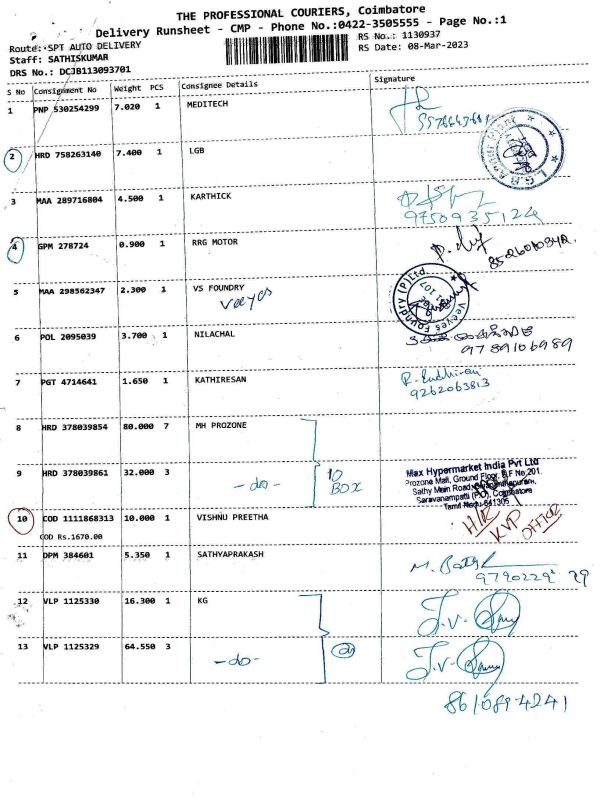 THE PROFESSIONAL COURIERS, Coimbatore
Delivery Runsheet - CMP - Phone No.:0422-3505555 - Page No.:1
Route: SPT AUTO DELIVERY
RS No.: 1130937
Staff: SATHISKUMAR
RS Date: 08-Mar-2023
DRS No.: DCJB113093701
S No Consignment No Weight PCS Consignee Details Signature
1 PNP 530254299 7.020 1 MEDITECH
2 HRD 758263140 7.400 1 LGB
3 MAA 289716804 4.500 1 KARTHICK
9750935124
4 GPM 278724 0.900 1 RRG MOTOR
5 MAA 298562347 2.300 1 VS FOUNDRY
Veeyes
Veeyes Foundry (P)Ltd.
6 POL 2095039 3.700 1 NILACHAL
9789106989
7 PGT 4714641 1.650 1 KATHIRESAN
9262063813
8 HRD 378039854 80.000 7 MH PROZONE
9 HRD 378039861 32.000 3 -do- 10 BOX
Max Hypermarket India Pvt Ltd
Prozone Mall, Ground Floor, B.F No.201,
Sathy Main Road,
Saravanampatti (P.O), Coimbatore
Tamil Nadu-641305
10 COD 1111868313 10.000 1 VISHNU PREETHA
H/R KVP OFFICE
COD Rs.1670.00
11 DPM 384601 5.350 1 SATHYAPRAKASH
12 VLP 1125330 16.300 1 KG
13 VLP 1125329 64.550 3 -do-
8610894241